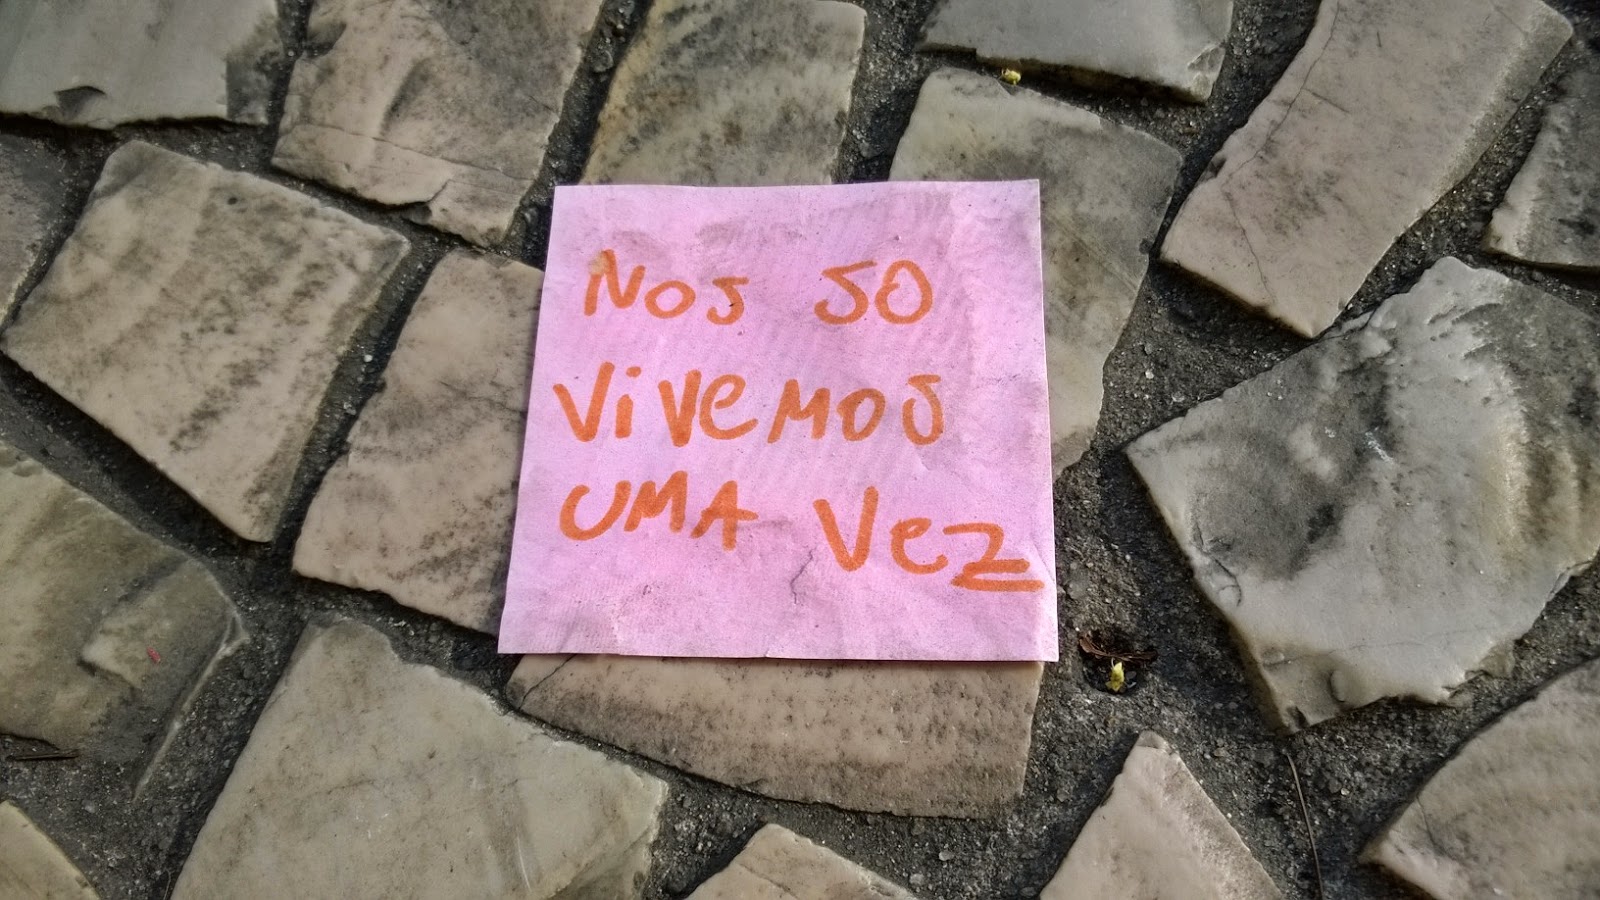 Nos so
ViVemos
uma Vez